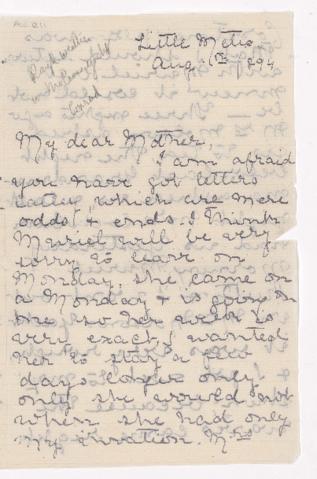 Little Metis
Aug. 6th 1894
My dear Mother,
I am afraid
you have got letters
lately, which are mere
odds & ends. I think
Muriel will be very
sorry to leave on
Monday. she came on
a Monday & is going on
one so her week is
very exact, I wanted
her to stay a few
days longer only
only she would not
when she had only
my invitation. Mrs